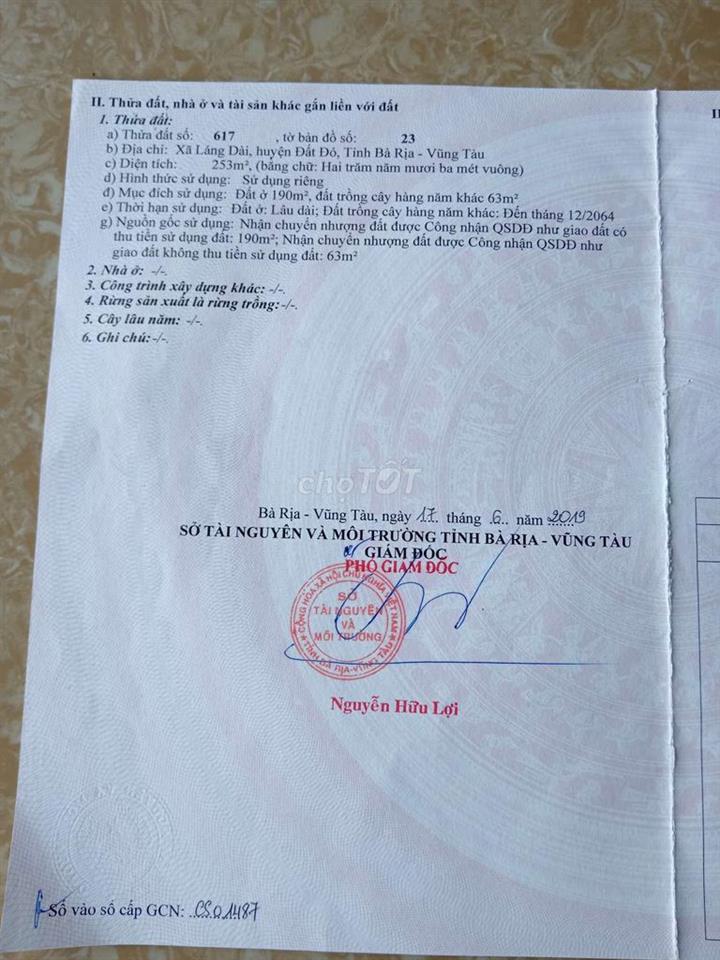 II. Thửa đất, nhà ở và tài sản khác gắn liền với đất
1. Thửa đất:
a) Thửa đất số: 617 , tờ bản đồ số: 23
b) Địa chỉ: Xã Láng Dài, huyện Đất Đỏ, Tỉnh Bà Rịa - Vũng Tàu
c) Diện tích: 253m², (bằng chữ: Hai trăm năm mươi ba mét vuông)
d) Hình thức sử dụng: Sử dụng riêng
đ) Mục đích sử dụng: Đất ở 190m², đất trồng cây hàng năm khác 63m²
e) Thời hạn sử dụng: Đất ở: Lâu dài; Đất trồng cây hàng năm khác: Đến tháng 12/2064
g) Nguồn gốc sử dụng: Nhận chuyển nhượng đất được Công nhận QSDĐ như giao đất có
thu tiền sử dụng đất: 190m²; Nhận chuyển nhượng đất được Công nhận QSDĐ như
giao đất không thu tiền sử dụng đất: 63m²
2. Nhà ở: -/-.
3. Công trình xây dựng khác: -/-.
4. Rừng sản xuất là rừng trồng:-/-.
5. Cây lâu năm: -/-.
6. Ghi chú:-/-.
chợTỐT
Bà Rịa - Vũng Tàu, ngày 17. tháng .6.. năm 2019
SỞ TÀI NGUYÊN VÀ MÔI TRƯỜNG TỈNH BÀ RỊA - VŨNG TÀU
GIÁM ĐỐC
PHÓ GIÁM ĐỐC
CỘNG HÒA XÃ HỘI CHỦ NGHĨA VIỆT NAM
SỞ
TÀI NGUYÊN
VÀ
MÔI TRƯỜNG
TỈNH BÀ RỊA-VŨNG TÀU
Nguyễn Hữu Lợi
Số vào sổ cấp GCN: .CS01487